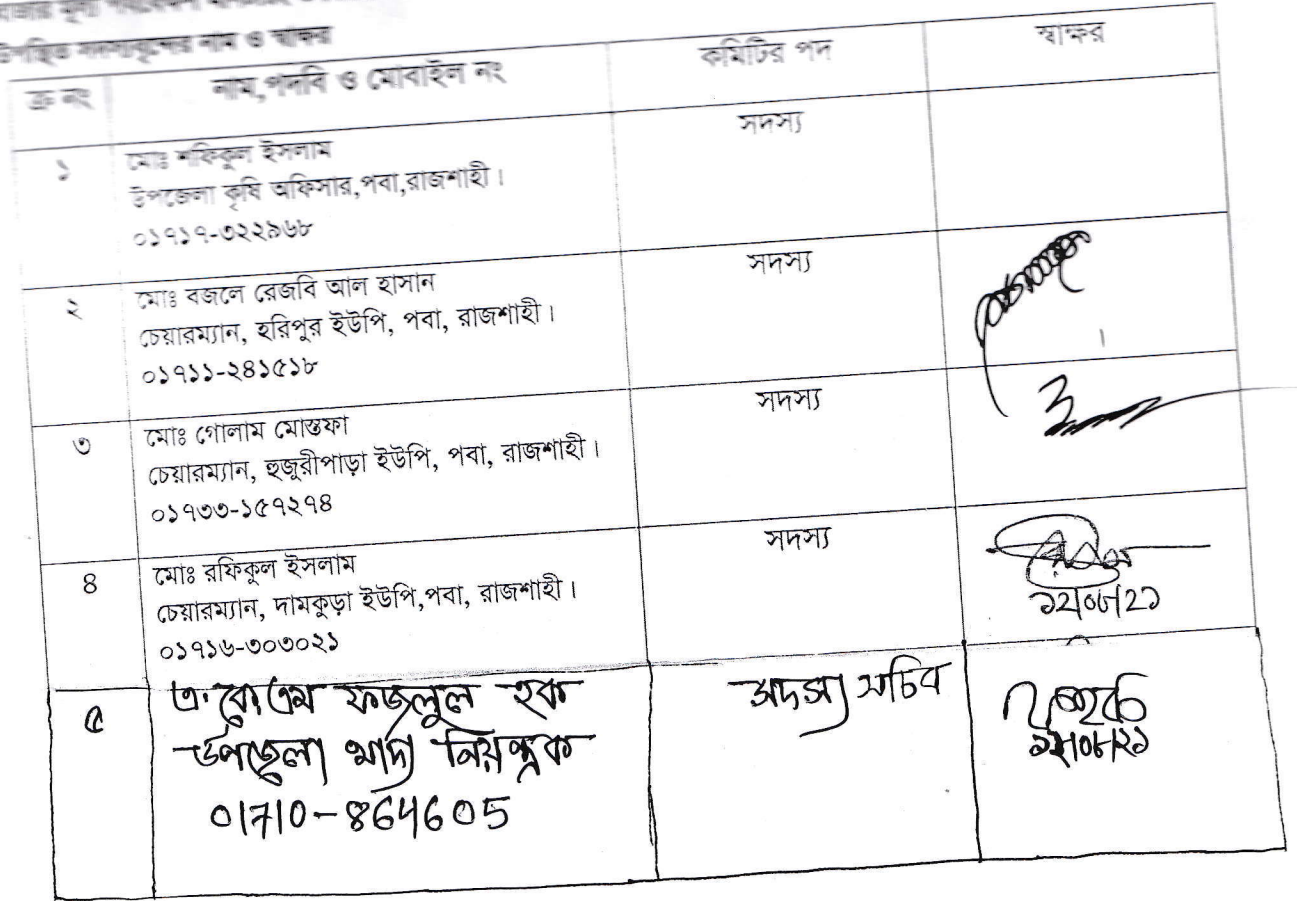 উপস্থিত সদস্যবৃন্দের নাম ও স্বাক্ষর
ক্র নং নাম,পদবি ও মোবাইল নং কমিটির পদ স্বাক্ষর
১ মোঃ শফিকুল ইসলাম সদস্য
উপজেলা কৃষি অফিসার,পবা,রাজশাহী।
০১৭১৭-৩২২৯৬৮
২ মোঃ বজলে রেজবি আল হাসান সদস্য
চেয়ারম্যান, হরিপুর ইউপি, পবা, রাজশাহী।
০১৭১১-২৪১৫১৮
৩ মোঃ গোলাম মোস্তফা সদস্য
চেয়ারম্যান, হুজুরীপাড়া ইউপি, পবা, রাজশাহী।
০১৭৩৩-১৫৭২৭৪
৪ মোঃ রফিকুল ইসলাম সদস্য
চেয়ারম্যান, দামকুড়া ইউপি,পবা, রাজশাহী।
০১৭১৬-৩০৩০২১
১২/০৮/২১
৫ এ.কে.এম ফজলুল হক সদস্য সচিব
উপজেলা খাদ্য নিয়ন্ত্রক
01710-864605
১২/০৮/২১